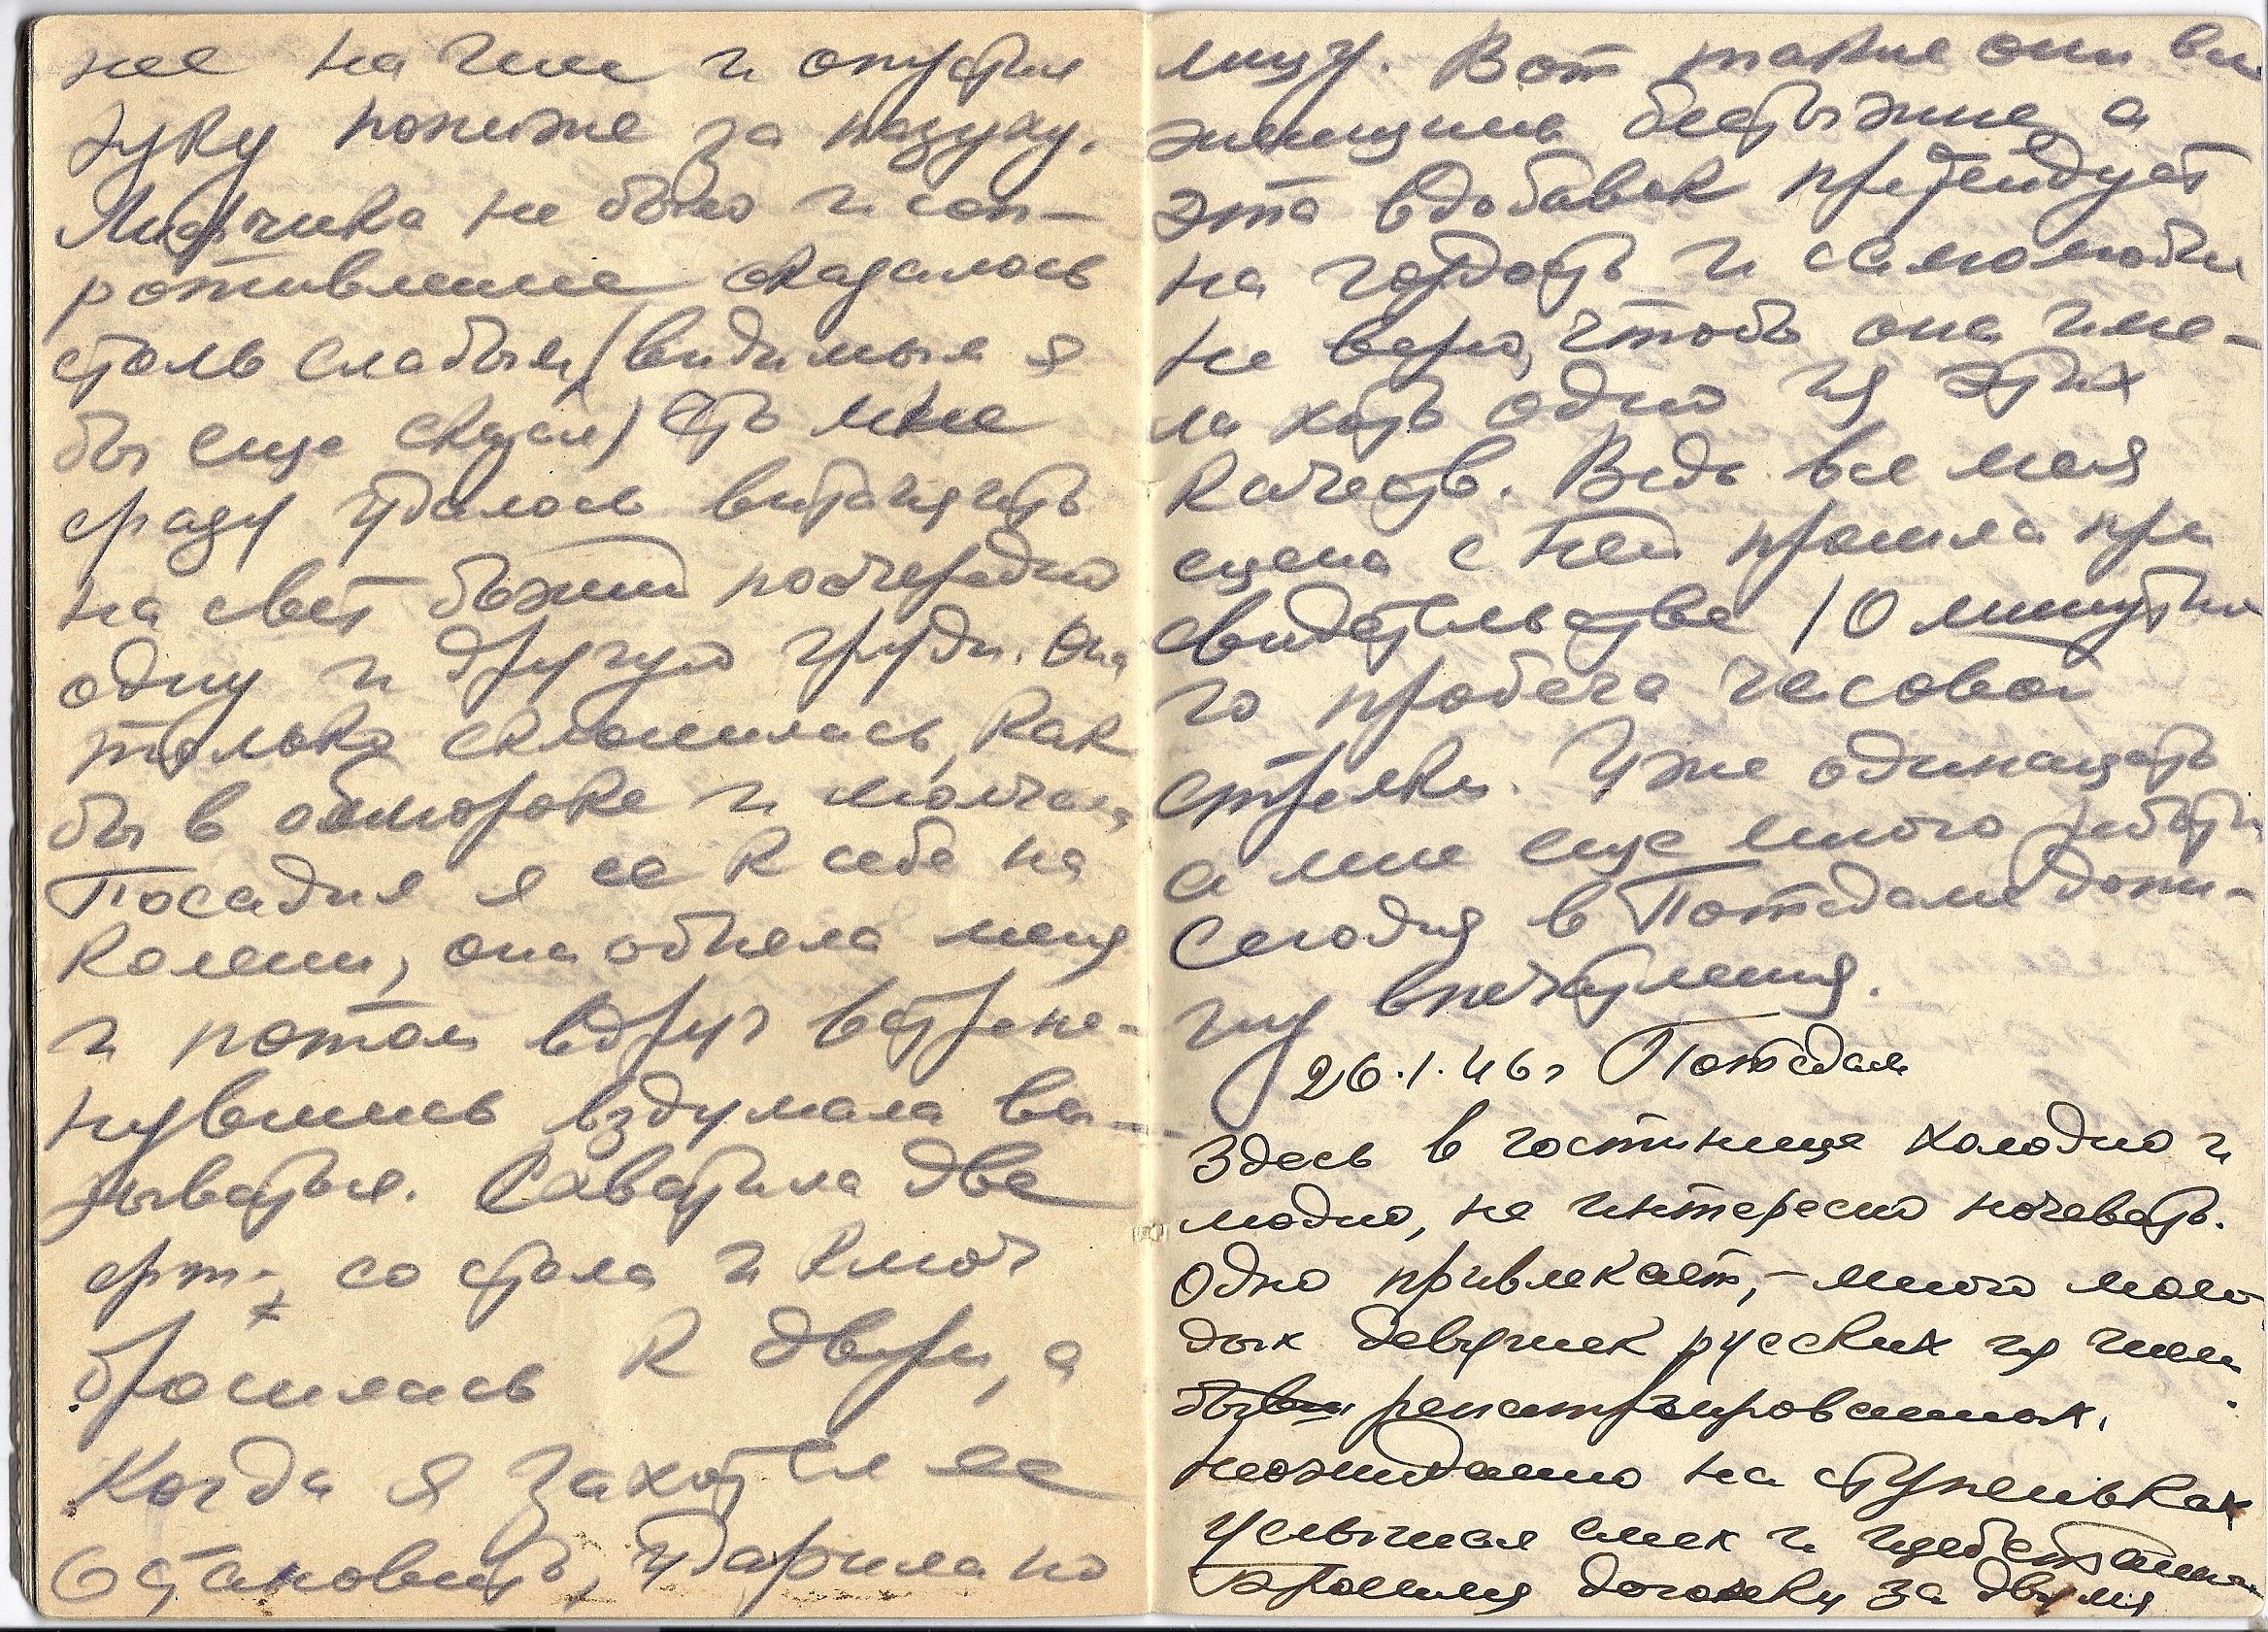 нее на шее и опустил
руку пониже за пазуху.
Лифчика не было и соп-
ротивление оказалось
столь слабым, (видимым я
бы еще сказал) что мне
сразу удалось вытащить
на свет божий поочередно
одну и другую груди. Она
только склонилась, как
бы в обмороке и молчала.
Посадил я ее к себе на
колени, она обняла меня
и потом вдруг встрепе-
нувшись вздумала вы-
рываться. Схватила две
со стола и ключ
бросилась к двери, а
Когда я захотел ее
остановить, ударила по
лицу. Вот такие они все
женщины бесстыжие, а
эта вдобавок претендует
на гордость и самолюбие
Не верю, чтоб она име-
ла хоть одно из этих
качеств. Ведь вся моя
сцена с ней прошла при
свидетельстве 10 минутно
го пробега часовой
стрелки. Уже одинацать
а мне еще много работы
Сегодня в Потсдаме допи-
шу впечатления.
26.1.46г Потсдам
Здесь в гостинице холодно и
людно, не интересно ночевать.
Одно привлекает, – много моло-
дых девушек русских из числа
репатриированных.
Неожиданно на ступеньках
услышал смех и
Бросился догонку за двумя